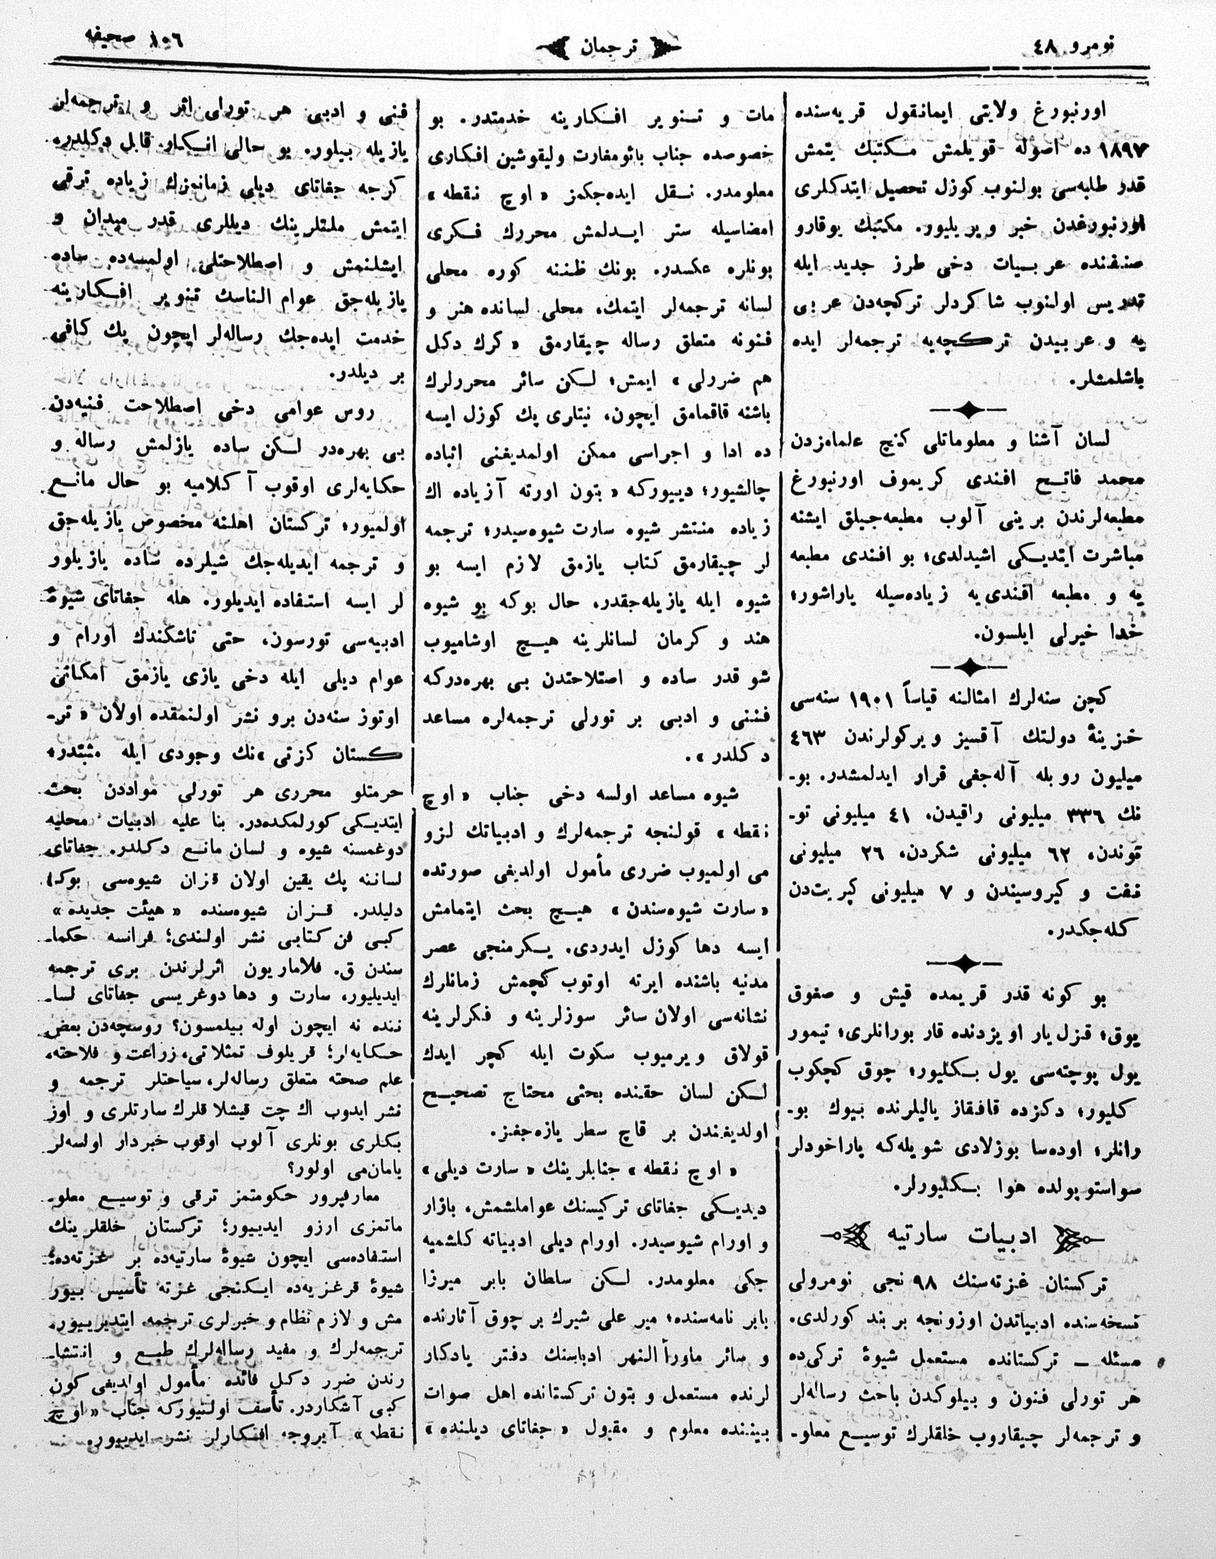 نومرو ٤٨
ترجمان
١٥٦ صحیفه
اورنبورغ ولایتی ایمانقول قریه‌سنده
١٨٩٧ ده اصوله قویلمش مکتبك یتمش
قدر طلبه‌سی بولنوب کوزل تحصیل ایتدکلری
اورنبورغدن خبر ویریلیور. مکتبك یوقارو
صنفنده عربیات دخی طرز جدید ایله
تدریس اولنوب شاکردلر ترکچه‌دن عربی
یه و عربیدن ترکچه‌یه ترجمه‌لر ایده
باشلمشلر.
لسان آشنا و معلوماتلی کنچ علمامزدن
محمد فاتح افندی کریموف اورنبورغ
مطبعه‌لرندن برینی آلوب مطبعه‌جیلق ایشنه
مباشرت ایتدیکی اشیدلدی؛ بو افندی مطبعه
یه و مطبعه افندی‌یه زیاده‌سیله یاراشور؛
خدا خیرلی ایلسون.
کچن سنه‌لرك امثالنه قیاساً ١٩٠١ سنه‌سی
خزینۀ دولتك آقسیز ویرکولرندن ٤٦٣
میلیون روبله آله‌جغی قرار ایدلمشدر. بو-
نك ٣٣٦ میلیونی راقیدن، ٤١ میلیونی تو-
توندن، ٦٢ میلیونی شکردن، ٢٦ میلیونی
نفت و کیروسیندن و ٧ میلیونی کبریت‌دن
کله‌جکدر.
بو کونه قدر قریمده قیش و صغوق
یوق؛ قزل یار اویزدنده قار بورانلری؛ تیمور
یول پوچته‌سی یول بکلیور؛ چوق کچکوب
کلیور؛ دکزده قافقاز یالیلرنده بیوك بو-
رانلر؛ اوده‌سا بوزلادی شویله‌که یاراخودلر
سواستوپولده هوا بکلیورلر.
ادبیات سارتیه
ترکستان غزته‌سنك ٩٨ نجی نومرولی
نسخه‌سنده ادبیاتدن اوزونجه بر بند کورلدی.
مسئله — ترکستانده مستعمل شیوۀ ترکی‌ده
هر تورلی فنون و بیلوکدن باحث رساله‌لر
و ترجمه‌لر چیقاروب خلقلرك توسیع معلو-
مات و تنویر افکارینه خدمتدر. بو
خصوصده جناب بانومغارت ولیقوشین افکاری
معلومدر. نقل ایده‌جکمز « اوچ نقطه »
امضاسیله ستر ایدلمش محررك فکری
بونلره عکسدر. بونك ظننه کوره محلی
لسانه ترجمه‌لر ایتمك، محلی لسانده هنر و
فنونه متعلق رساله چیقارمق « کرك دکل
هم ضررلی » ایمش؛ لکن سائر محررلرك
باشنه قاقمامق ایچون، نیتلری پك کوزل ایسه
ده ادا و اجراسی ممکن اولمدیغنی اثباته
چالشیور؛ دیبورکه « بتون اورته آزیاده اك
زیاده منتشر شیوه سارت شیوه‌سیدر؛ ترجمه
لر چیقارمق کتاب یازمق لازم ایسه بو
شیوه ایله یازیله‌جقدر. حال بوکه بو شیوه
هند و کرمان لسانلرینه هیچ اوشامیوب
شو قدر ساده و اصتلاحتدن بی بهره‌درکه
فننی و ادبی بر تورلی ترجمه‌لره مساعد
دکلدر ».
شیوه مساعد اولسه دخی جناب « اوچ
نقطه » قولنجه ترجمه‌لرك و ادبیاتك لزو
می اولمیوب ضرری مأمول اولدیغی صورتده
« سارت شیوه‌سندن » هیچ بحث ایتمامش
ایسه دها کوزل ایدردی. یکرمنجی عصر
مدنیه باشنده ایرته اوتوب کچمش زمانلرك
نشانه‌سی اولان سائر سوزلرینه و فکرلرینه
قولاق ویرمیوب سکوت ایله کچر ایدك
لکن لسان حقنده بحثی محتاج تصحیح
اولدیغندن بر قاچ سطر یازه‌جغز.
« اوچ نقطه » جنابلرینك « سارت دیلی »
دیدیکی جغاتای ترکیسنك عواملشمش، بازار
و اورام شیوسیدر. اورام دیلی ادبیاته کلشمیه
جکی معلومدر. لکن سلطان بابر میرزا
بابر نامه‌سنده؛ میر علی شیرك بر چوق آثارنده
و سائر ماورأ النهر ادباسنك دفتر یادکار
لرنده مستعمل و بتون ترکستانده اهل صوات
بیننده معلوم و مقبول « جغاتای دیلنده »
فنی و ادبی هر تورلی اثر و ترجمه‌لر
یازیله بیلور. بو حالی انکار قابل دکلدر.
کرجه جغاتای دیلی زمانمزك زیاده ترقی
ایتمش ملتلرینك دیللری قدر میدان و
ایشلنمش و اصطلاحتلی اولمسه‌ده ساده
یازیله‌جق عوام الناسك تنویر افکارینه
خدمت ایده‌جك رساله‌لر ایچون پك کافی
بر دیلدر.
روس عوامی دخی اصطلاحت فنیه‌دن
بی بهره‌در لکن ساده یازلمش رساله و
حکایه‌لری اوقوب آکلامیه بو حال مانع
اولمیور؛ ترکستان اهلنه مخصوص یازیله‌جق
و ترجمه ایدیله‌جك شیلرده ساده یازیلور
لر ایسه استفاده ایدیلور. هله جغاتای شیوۀ
ادبیه‌سی تورسون، حتی تاشکندك اورام و
عوام دیلی ایله دخی یازی یازمق امکانی
اوتوز سنه‌دن برو نشر اولنمقده اولان « تر-
کستان کزتی »نك وجودی ایله مثبتدر؛
حرمتلو محرری هر تورلی مواددن بحث
ایتدیکی کورلمکده‌در. بنا علیه ادبیات محلیه
دوغمسنه شیوه و لسان مانع دکلدر. جغاتای
لساننه پك یقین اولان قزان شیوه‌سی بوکا
دلیلدر. قزان شیوه‌سنده « هیئت جدیده »
کبی فن کتابی نشر اولندی؛ فرانسه حکما-
سندن ق. فلاماریون اثرلرندن بری ترجمه
ایدیلیور، سارت و دها دوغریسی جغاتای لسا-
ننده نه ایچون اوله بیلمسون؟ روسچه‌دن بعض
حکایه‌لر؛ قریلوف تمثلاتی، زراعت و فلاحته،
علم صحته متعلق رساله‌لر، سیاحتلر ترجمه و
نشر ایدوب اك چت قیشلاقلرك سارتلری و اوز
بکلری بونلری آلوب اوقوب خبردار اولسه‌لر
یامان‌می اولور؟
معارفپرور حکومتمز ترقی و توسیع معلو-
ماتمزی ارزو ایدییور؛ ترکستان خلقلرینك
استفاده‌سی ایچون شیوۀ سارتیه‌ده بر غزته‌ده؛
شیوۀ قرغزیه‌ده ایکنجی غزته تأسیس بیور
مش و لازم نظام و خبرلری ترجمه ایتدیریبور.
ترجمه‌لرك و مفید رساله‌لرك طبع و انتشا-
رندن ضرر دکل فائده مأمول اولدیغی کون
کبی آشکاردر. تأسف اولنیورکه جناب « اوچ
نقطه » آیروجه افکارلر نشر ایدییور.